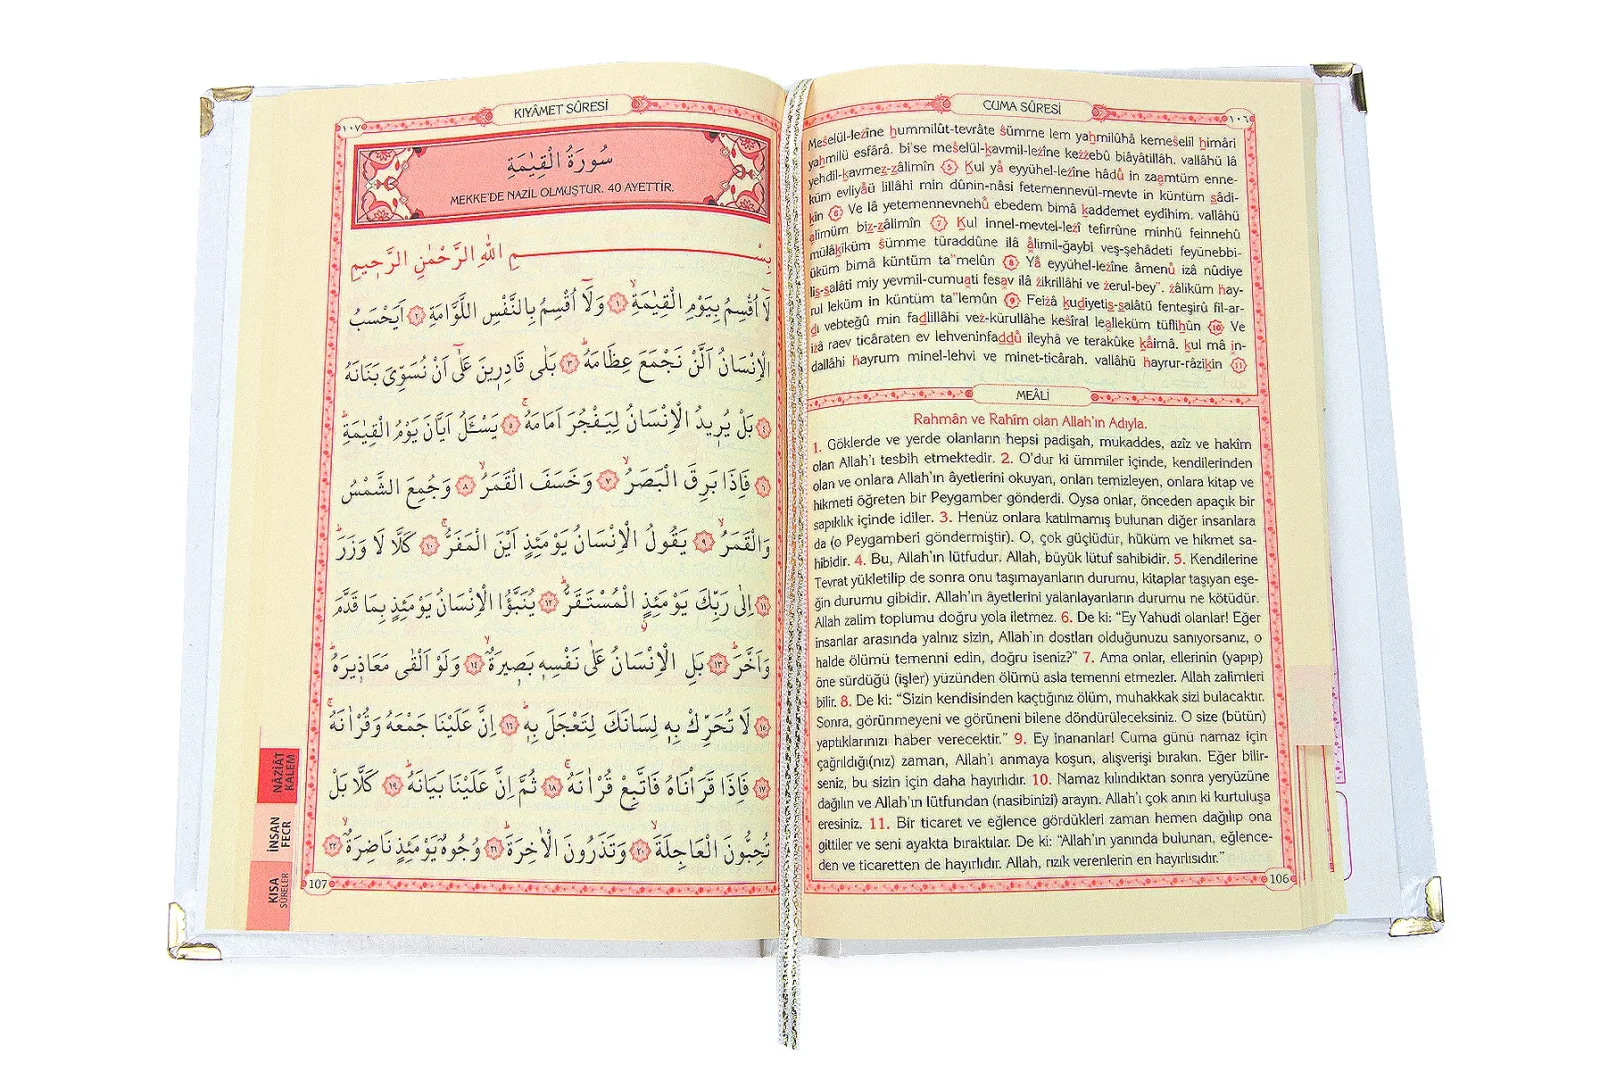 CUMA SÛRESİ
١٠٦
Meśelül-leżîne hummilût-tevrâte śümme lem yahmilûhâ kemeśelil himâri
yahmilü esfârâ. bi'se meśelül-kavmil-leżîne keżżebû biâyâtillâh. vallâhü lâ
yehdil-kavmez-zâlimîn 5 Kul yâ eyyühel-leżîne hâdû in zaamtüm enne-
küm evliyâü lillâhi min dûnin-nâsi fetemennevül-mevte in küntüm sâdi-
kîn 6 Ve lâ yetemennevnehû ebedem bimâ kaddemet eydîhim. vallâhü
alîmüm biz-zâlimîn 7 Kul innel-mevtel-leżî tefirrûne minhü feinnehû
mülâkîküm śümme türaddûne ilâ âlimil-ğaybi veş-şehâdeti feyünebbi-
üküm bimâ küntüm ta"melûn 8 Yâ eyyühel-leżîne âmenû iżâ nûdiye
lis-salâti miy yevmil-cumuati fesav ilâ żikrillâhi ve żerul-bey". żâliküm hay-
rul leküm in küntüm ta"lemûn 9 Feiżâ kudiyetis-salâtü fenteşirû fil-ar-
dı vebteğû min fadlillâhi veż-kürullâhe keśîral lealleküm tüflihûn 10 Ve
iżâ raev ticâraten ev lehveninfaddû ileyhâ ve terakûke kâimâ. kul mâ in-
dallâhi hayrum minel-lehvi ve minet-ticârah. vallâhü hayrur-râzikîn 11
MEÂLİ
Rahmân ve Rahîm olan Allah'ın Adıyla.
1. Göklerde ve yerde olanların hepsi padişah, mukaddes, azîz ve hakîm
olan Allah'ı tesbih etmektedir. 2. O'dur ki ümmiler içinde, kendilerinden
olan ve onlara Allah'ın âyetlerini okuyan, onlan temizleyen, onlara kitap ve
hikmeti öğreten bir Peygamber gönderdi. Oysa onlar, önceden apaçık bir
sapıklık içinde idiler. 3. Henüz onlara katılmamış bulunan diğer insanlara
da (o Peygamberi göndermiştir). O, çok güçlüdür, hüküm ve hikmet sa-
hibidir. 4. Bu, Allah'ın lütfudur. Allah, büyük lütuf sahibidir. 5. Kendilerine
Tevrat yükletilip de sonra onu taşımayanların durumu, kitaplar taşıyan eşe-
ğin durumu gibidir. Allah'ın âyetlerini yalanlayanların durumu ne kötüdür.
Allah zalim toplumu doğru yola iletmez. 6. De ki: "Ey Yahudi olanlar! Eğer
insanlar arasında yalnız sizin, Allah'ın dostları olduğunuzu sanıyorsanız, o
halde ölümü temenni edin, doğru iseniz?" 7. Ama onlar, ellerinin (yapıp)
öne sürdüğü (işler) yüzünden ölümü asla temenni etmezler. Allah zalimleri
bilir. 8. De ki: "Sizin kendisinden kaçtığınız ölüm, muhakkak sizi bulacaktır.
Sonra, görünmeyeni ve görüneni bilene döndürüleceksiniz. O size (bütün)
yaptıklarınızı haber verecektir." 9. Ey inananlar! Cuma günü namaz için
çağrıldığı(nız) zaman, Allah'ı anmaya koşun, alışverişi bırakın. Eğer bilir-
seniz, bu sizin için daha hayırlıdır. 10. Namaz kılındıktan sonra yeryüzüne
dağılın ve Allah'ın lütfundan (nasibinizi) arayın. Allah'ı çok anın ki kurtuluşa
eresiniz. 11. Bir ticaret ve eğlence gördükleri zaman hemen dağılıp ona
gittiler ve seni ayakta bıraktılar. De ki: "Allah'ın yanında bulunan, eğlence-
den ve ticaretten de hayırlıdır. Allah, rızık verenlerin en hayırlısıdır."
106
KIYÂMET SÛRESİ
١٠٧
سُورَةُ الْقِيٰمَةِ
MEKKE'DE NAZİL OLMUŞTUR. 40 AYETTİR.
بِسْــــــمِ اللهِ الرَّحْمٰنِ الرَّحِيمِ
لَٓا اُقْسِمُ بِيَوْمِ الْقِيٰمَةِۙ ١ وَلَٓا اُقْسِمُ بِالنَّفْسِ اللَّوَّامَةِ ٢ اَيَحْسَبُ
الْاِنْسَانُ اَلَّنْ نَجْمَعَ عِظَامَهُۜ ٣ بَلٰى قَادِرِينَ عَلٰٓى اَنْ نُسَوِّيَ بَنَانَهُ
٤ بَلْ يُرِيدُ الْاِنْسَانُ لِيَفْجُرَ اَمَامَهُۚ ٥ يَسْـَٔلُ اَيَّانَ يَوْمُ الْقِيٰمَةِۜ
٦ فَاِذَا بَرِقَ الْبَصَرُۙ ٧ وَخَسَفَ الْقَمَرُۙ ٨ وَجُمِعَ الشَّمْسُ
وَالْقَمَرُۙ ٩ يَقُولُ الْاِنْسَانُ يَوْمَئِذٍ اَيْنَ الْمَفَرُّۚ ١٠ كَلَّا لَا وَزَرَۜ
١١ اِلٰى رَبِّكَ يَوْمَئِذٍ الْمُسْتَقَرُّۜ ١٢ يُنَبَّؤُا الْاِنْسَانُ يَوْمَئِذٍ بِمَا قَدَّمَ
وَاَخَّرَۜ ١٣ بَلِ الْاِنْسَانُ عَلٰى نَفْسِهٖ بَصِيرَةٌۙ ١٤ وَلَوْ اَلْقٰى مَعَاذِيرَهُۜ
١٥ لَا تُحَرِّكْ بِهٖ لِسَانَكَ لِتَعْجَلَ بِهٖۜ ١٦ اِنَّ عَلَيْنَا جَمْعَهُ وَقُرْاٰنَهُۚ
١٧ فَاِذَا قَرَأْنَاهُ فَاتَّبِعْ قُرْاٰنَهُۚ ١٨ ثُمَّ اِنَّ عَلَيْنَا بَيَانَهُۜ ١٩ كَلَّا بَلْ
تُحِبُّونَ الْعَاجِلَةَۙ ٢٠ وَتَذَرُونَ الْاٰخِرَةَۜ ٢١ وُجُوهٌ يَوْمَئِذٍ نَاضِرَةٌۙ ٢٢
107
NÂZİÂT
KALEM
İNSAN
FECR
KISA
SÛRELER